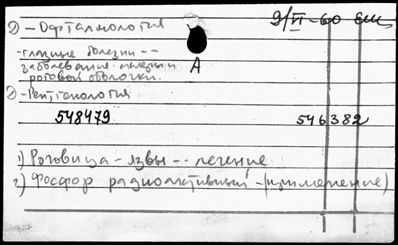 2) - Офтальмология 9/II-60
-глазные болезни --
заболевания
роговой оболочки.
А
2) - Рентгенология
548479 546382
1) Роговица - язвы -- лечение
2) Фосфор радиоактивный - (применение)